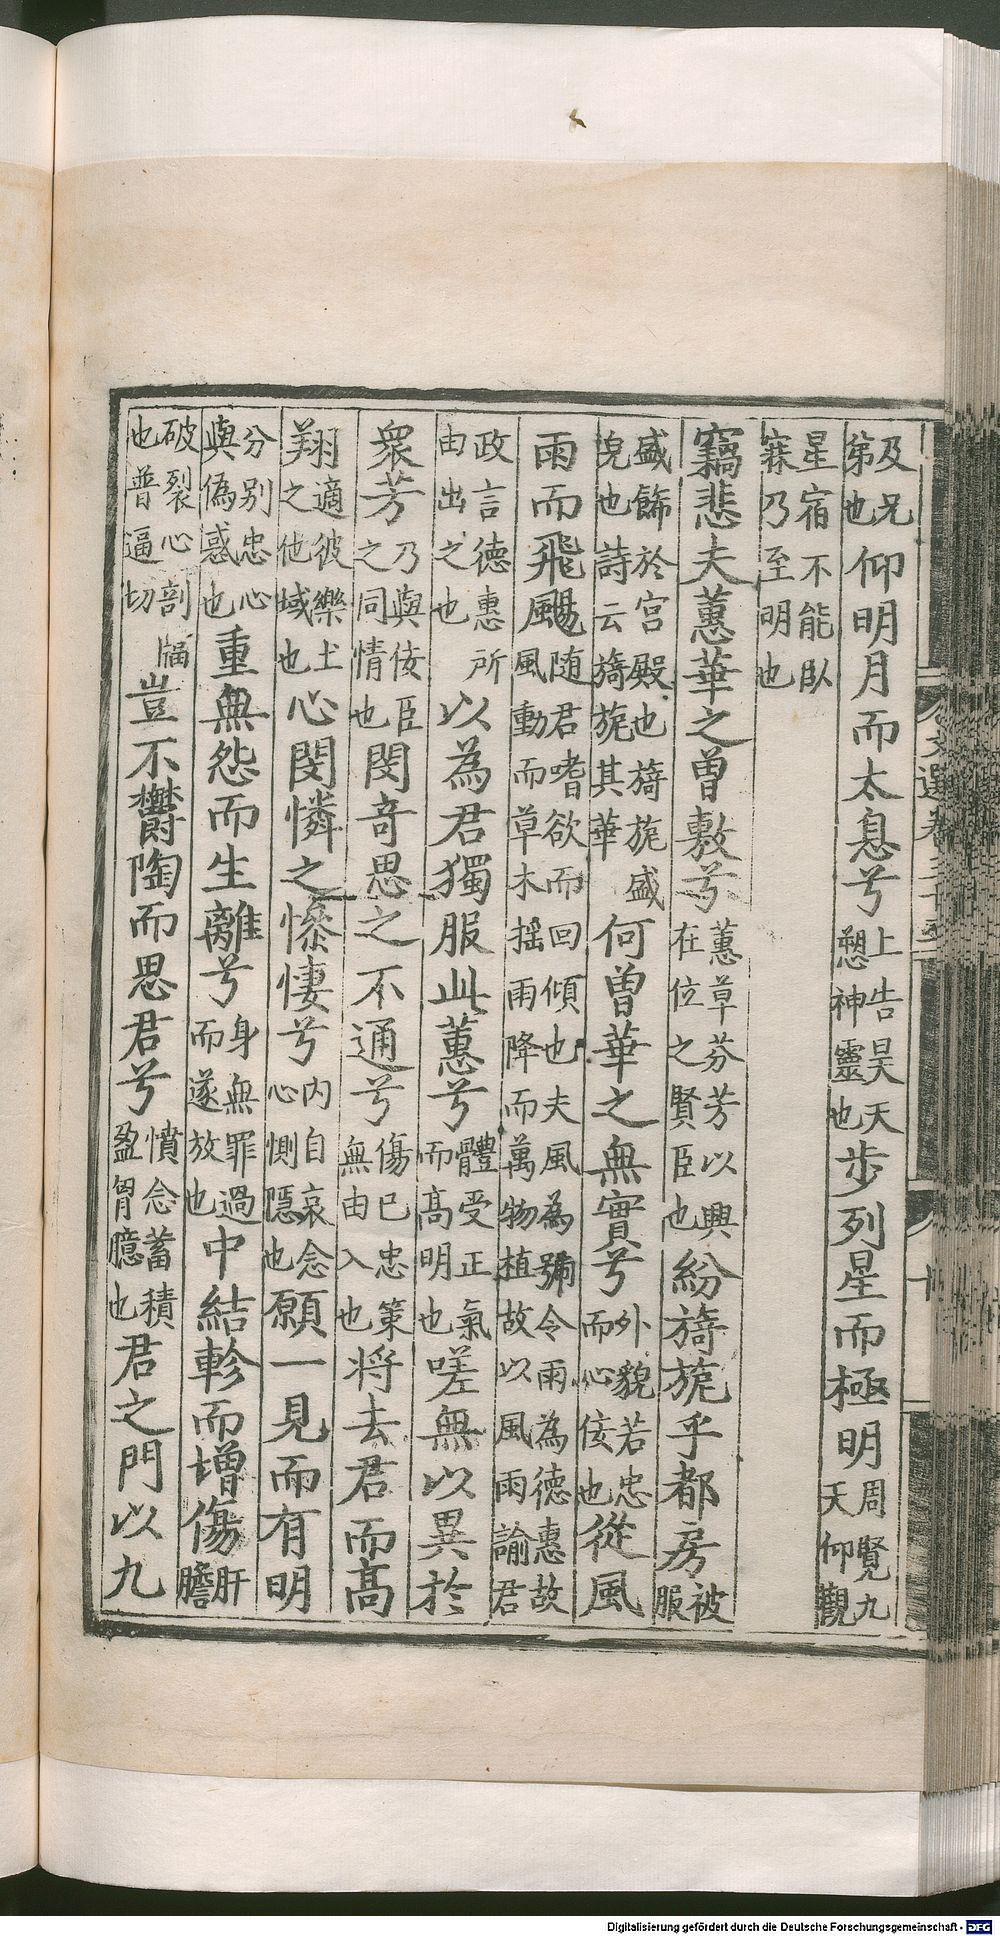 及兄弟也仰明月而太息兮上告昊天愬神靈也步列星而極明周覽九天仰觀
星宿不能臥寐乃至明也
竊悲夫蕙華之曾敷兮蕙草芬芳以興在位之賢臣也紛旖旎乎都房被服
盛飾於宮殿也旖旎盛皃也詩云旖旎其華何曾華之無實兮外貌若忠而心佞也從風
雨而飛颺隨君嗜欲而回傾也夫風為號令雨為德惠故風動而草木摇雨降而萬物植故以風雨諭君
政言德惠所由出之也以為君獨服此蕙兮體受正氣而高明也嗟無以異於
衆芳乃與佞臣之同情也閔竒思之不通兮傷已忠策無由入也将去君而高
翔適彼樂土之他域也心閔憐之慘悽兮内自哀念心惻隱也願一見而有明
分別忠心與偽惑也重無怨而生離兮身無罪過而遂放也中結軫而增傷肝膽
破裂心剖幅也普逼切豈不鬱陶而思君兮憤念蓄積盈胷臆也君之門以九
Digitalisierung gefördert durch die Deutsche Forschungsgemeinschaft - DFG